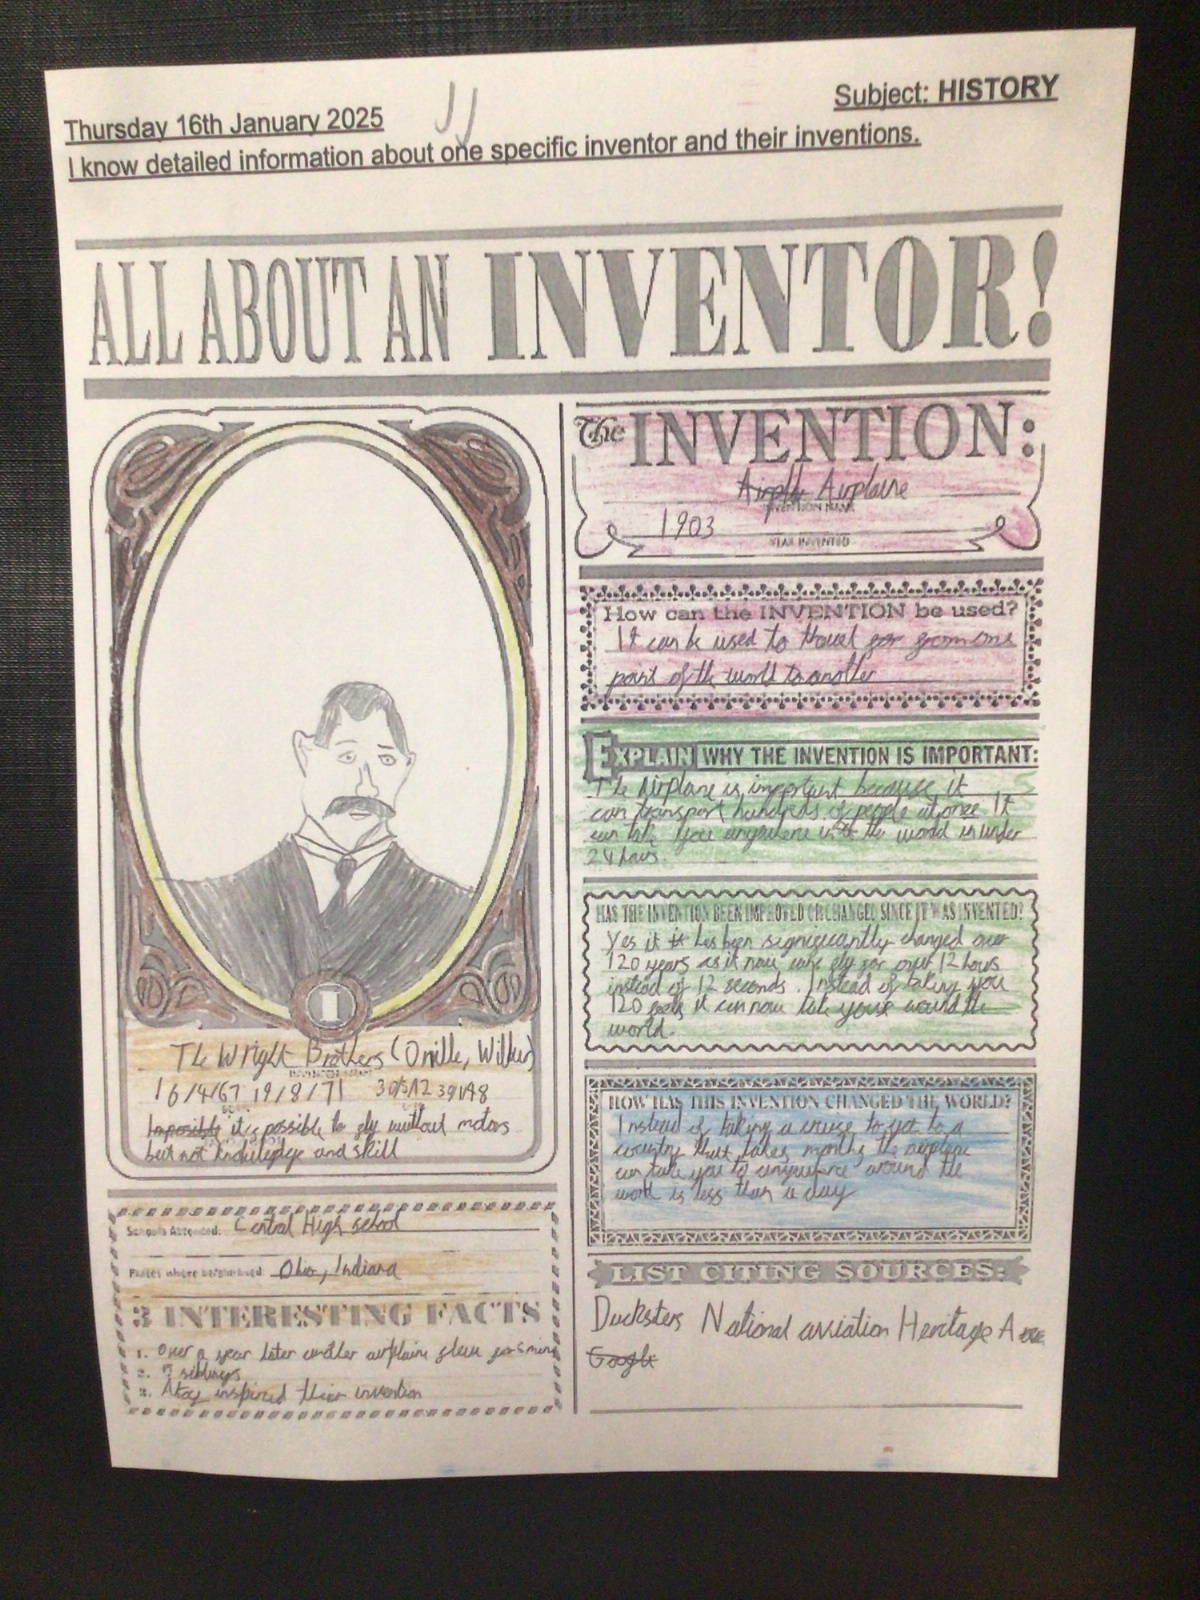 Thursday 16th January 2025
Subject: HISTORY
I know detailed information about one specific inventor and their inventions.
ALL ABOUT AN INVENTOR!
The INVENTION:
Airplaine
INVENTION NAME
1903
YEAR INVENTED
How can the INVENTION be used?
It can be used to travel from one
point of the world to another
EXPLAIN WHY THE INVENTION IS IMPORTANT:
The Airplane is important because it
can transport hundreds of people at once It
can take you anywhere the world in under
24 hours.
HAS THE INVENTION BEEN IMPROVED OR CHANGED SINCE IT WAS INVENTED?
Yes it has been significantly changed over
120 years as it now can fly for over 12 hours
instead of 12 seconds. Instead of taking you
120 feet it can now take your around the
world.
HOW HAS THIS INVENTION CHANGED THE WORLD?
Instead of taking a cruise to get to a
country that takes months the airplane
can take you to anywhere around the
world is less than a day
LIST CITING SOURCES:
Ducksters National aviation Heritage
Google
I
The Wright Brothers (Orville, Wilbur)
16/4/67 19/8/71 30/5/12
Impossible it's possible to fly without motors
but not and skill
Schools Attended: Central High school
Places where he/she lived: Ohio, Indiana
3 INTERESTING FACTS
1. Over a year later another airplaine flew for 5 mins
2. 7 siblings
3. A toy inspired their invention